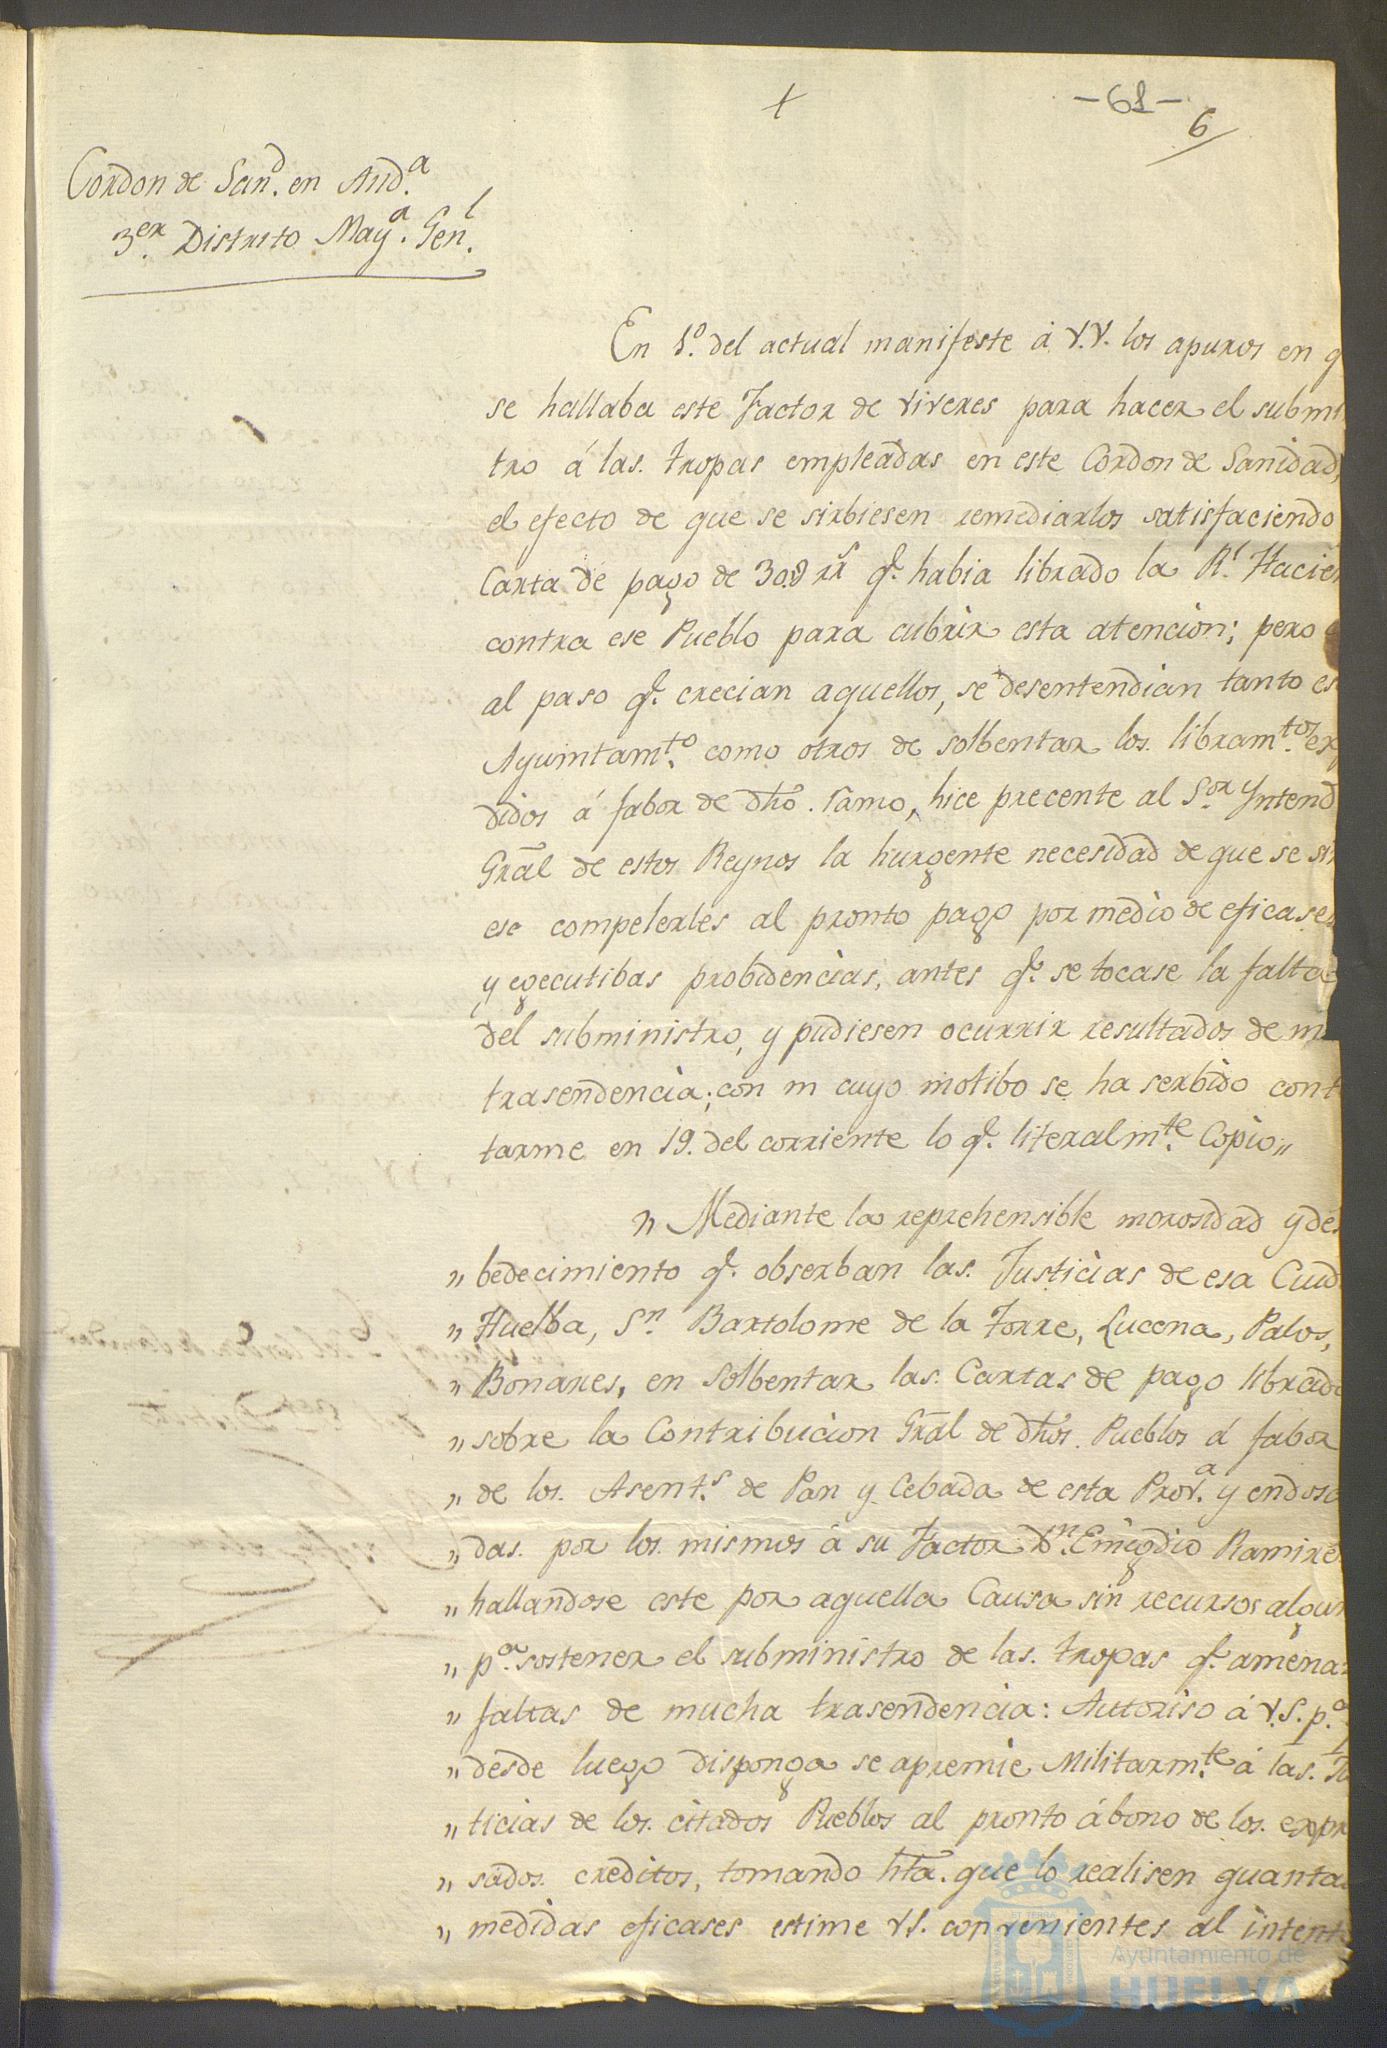 +
-61-
6
Cordon de San.d en And.a
3.er Distrito May.a Gen.l
En 1.o del actual manifeste á V.V. los apuros en q
se hallaba este Factor de viveres para hacer el submi
tro á las tropas empleadas en este Cordon de Sanidad,
el efecto de que se sirbiesen remediarlos satisfaciendo
Carta de pago de 30.8 rr.s q.e habia librado la R.l Hacien
contra ese Pueblo para cubrir esta atencion; pero
al paso q.e crecian aquellos, se desentendian tanto es
Ayuintam.to como otros de solbentar los libram.tos ex
didos á fabor de dho. ramo, hice precente al S.or Yntend
Gral de estos Reynos la hurgente necesidad de que se sir
ese compelerles al pronto pago por medio de eficases
y egecutibas probidencias, antes q.e se tocase la falta
del subministro, y pudiesen ocurrir resultados de m
trasendencia; con m cuyo motibo se ha serbido cont
tarme en 19. del corriente lo q.e literalm.te Copio„
„ Mediante la reprehensible morosidad y des
„ bedecimiento q.e obserban las Justicias de esa Ciud
„ Huelba, S.n Bartolome de la Torre, Lucena, Palos,
„ Bonares, en solbentar las Cartas de pago librada
„ sobre la Contribucion Gral de dhos. Pueblos á fabor
„ de los Asent.s de Pan y Cebada de esta Prov.a y endosa
„ das por los mismos á su Factor D.n Emigdio Ramire
„ hallandose este por aquella Causa sin recursos algun
„ p.a sostener el subministro de las tropas q.e amenaz
„ faltas de mucha trasendencia: Autoriso á V.S. p.a
„ desde luego disponga se apremie Militarm.te á las Ju
„ ticias de los citados Pueblos al pronto ábono de los expr
„ sados creditos, tomando hta. que lo realisen quanta
„ medidas eficases estime V.S. convenientes al intent
Ayuntamiento de
HUELVA